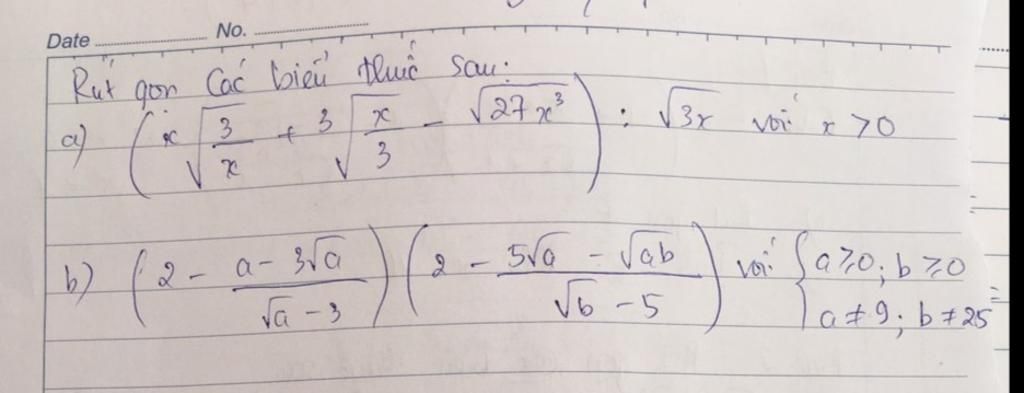 Date No.
Rút gọn các biểu thức sau:
a) (x√(3/x) + 3√(x/3) - √(27x³)) : √(3x) với x > 0
b) (2 - (a - 3√a)/(√a - 3)) (2 - (5√a - √(ab))/(√b - 5)) với { a ≥ 0; b ≥ 0
a ≠ 9; b ≠ 25